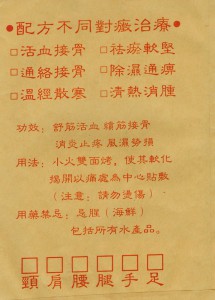 ●配方不同對癥治療●
□活血接骨 □祛瘀軟堅
□通絡接骨 □除濕通痹
□溫經散寒 □清熱消腫
功效：舒筋活血 續筋接骨
消炎止疼 風濕勞損
用法：小火雙面烤，使其軟化
揭開以痛處為中心貼敷
（注意：請勿燙傷）
用藥禁忌：忌腥（海鮮）
包括所有水產品。
□□□□□□
頸肩腰腿手足